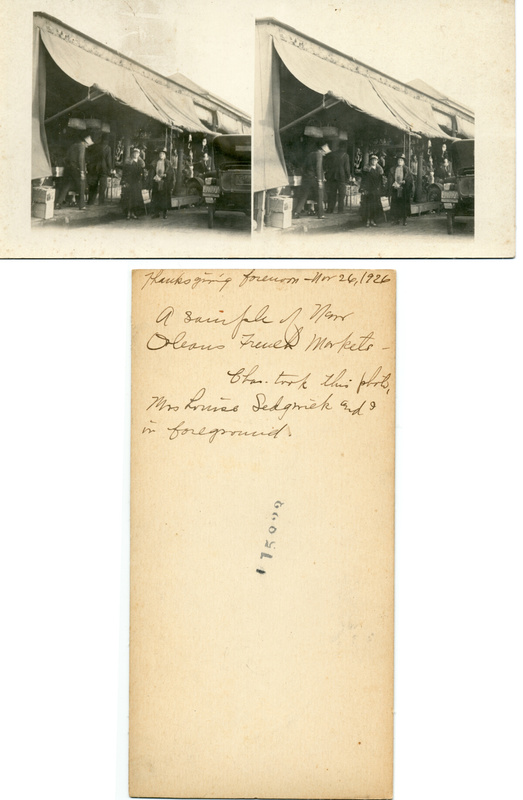 Thanksgiving forenoon - Nov 26, 1926
A sample of New
Orleans French Markets -
Chas. took this photo,
Mrs Louise Sedgwick and I
in foreground.